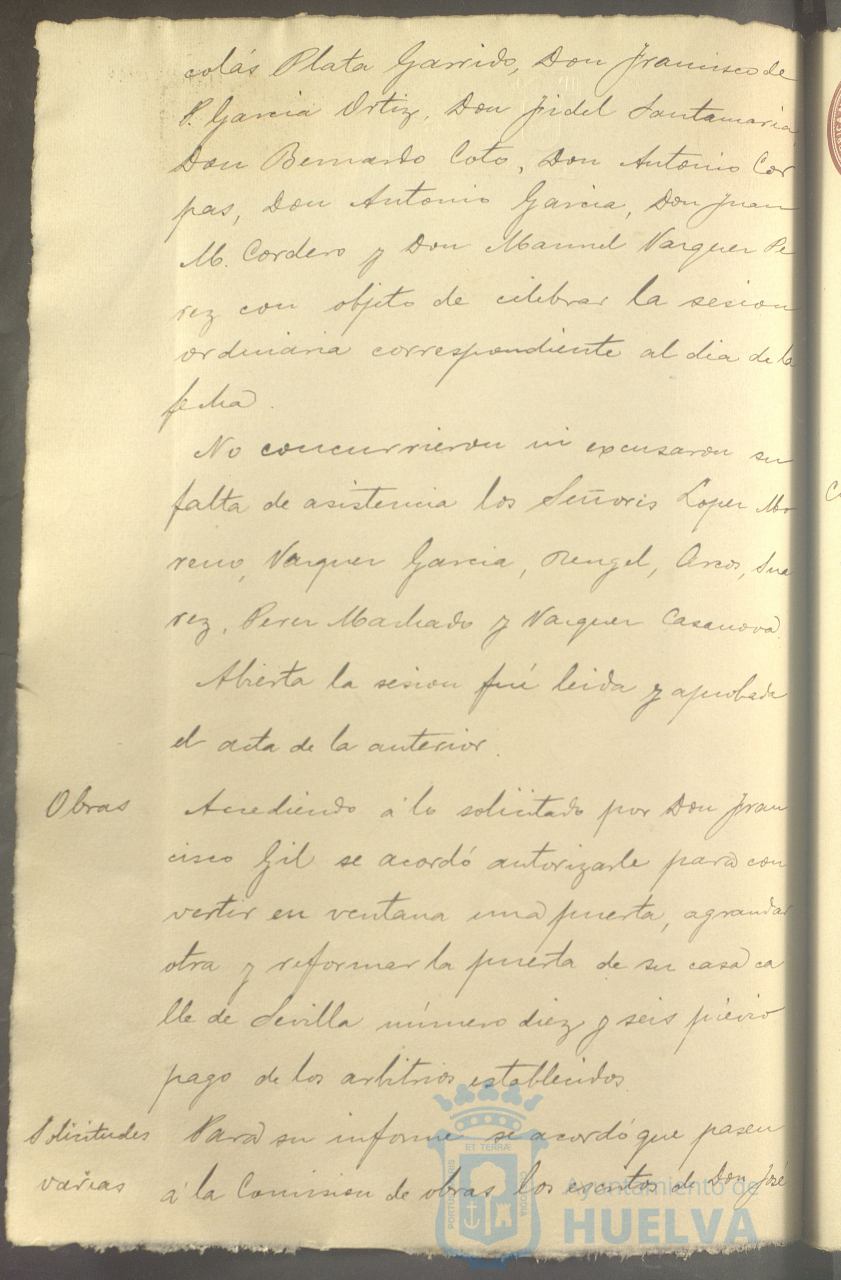 colás Plata Garrido, Don Francisco de
P. Garcia Ortiz, Don Fidel Santamaria,
Don Bernardo Coto, Don Antonio Cor
pas, Don Antonio Garcia, Don Juan
M. Cordero y Don Manuel Vazquez Pe
rez con objeto de celebrar la sesion
ordinaria correspondiente al dia de la
fecha.
No concurrieron ni excusaron su
falta de asistencia los Señores Lopez Mo
reno, Vazquez Garcia, Rengel, Arcos, Sua
rez, Perez Machado y Vazquez Casanova.
Abierta la sesion fué leida y aprobada
el acta de la anterior.
Obras
Accediendo á lo solicitado por Don Fran
cisco Gil se acordó autorizarle para con
vertir en ventana una puerta, agrandar
otra y reformar la puerta de su casa ca
lle de Sevilla número diez y seis prévio
pago de los arbitrios establecidos.
Solicitudes
varias
Para su informe se acordó que pasen
á la Comision de obras los escritos de Don José
ET TERRÆ
PORTUS MARIS
CUSTODIA
Ayuntamiento de
HUELVA